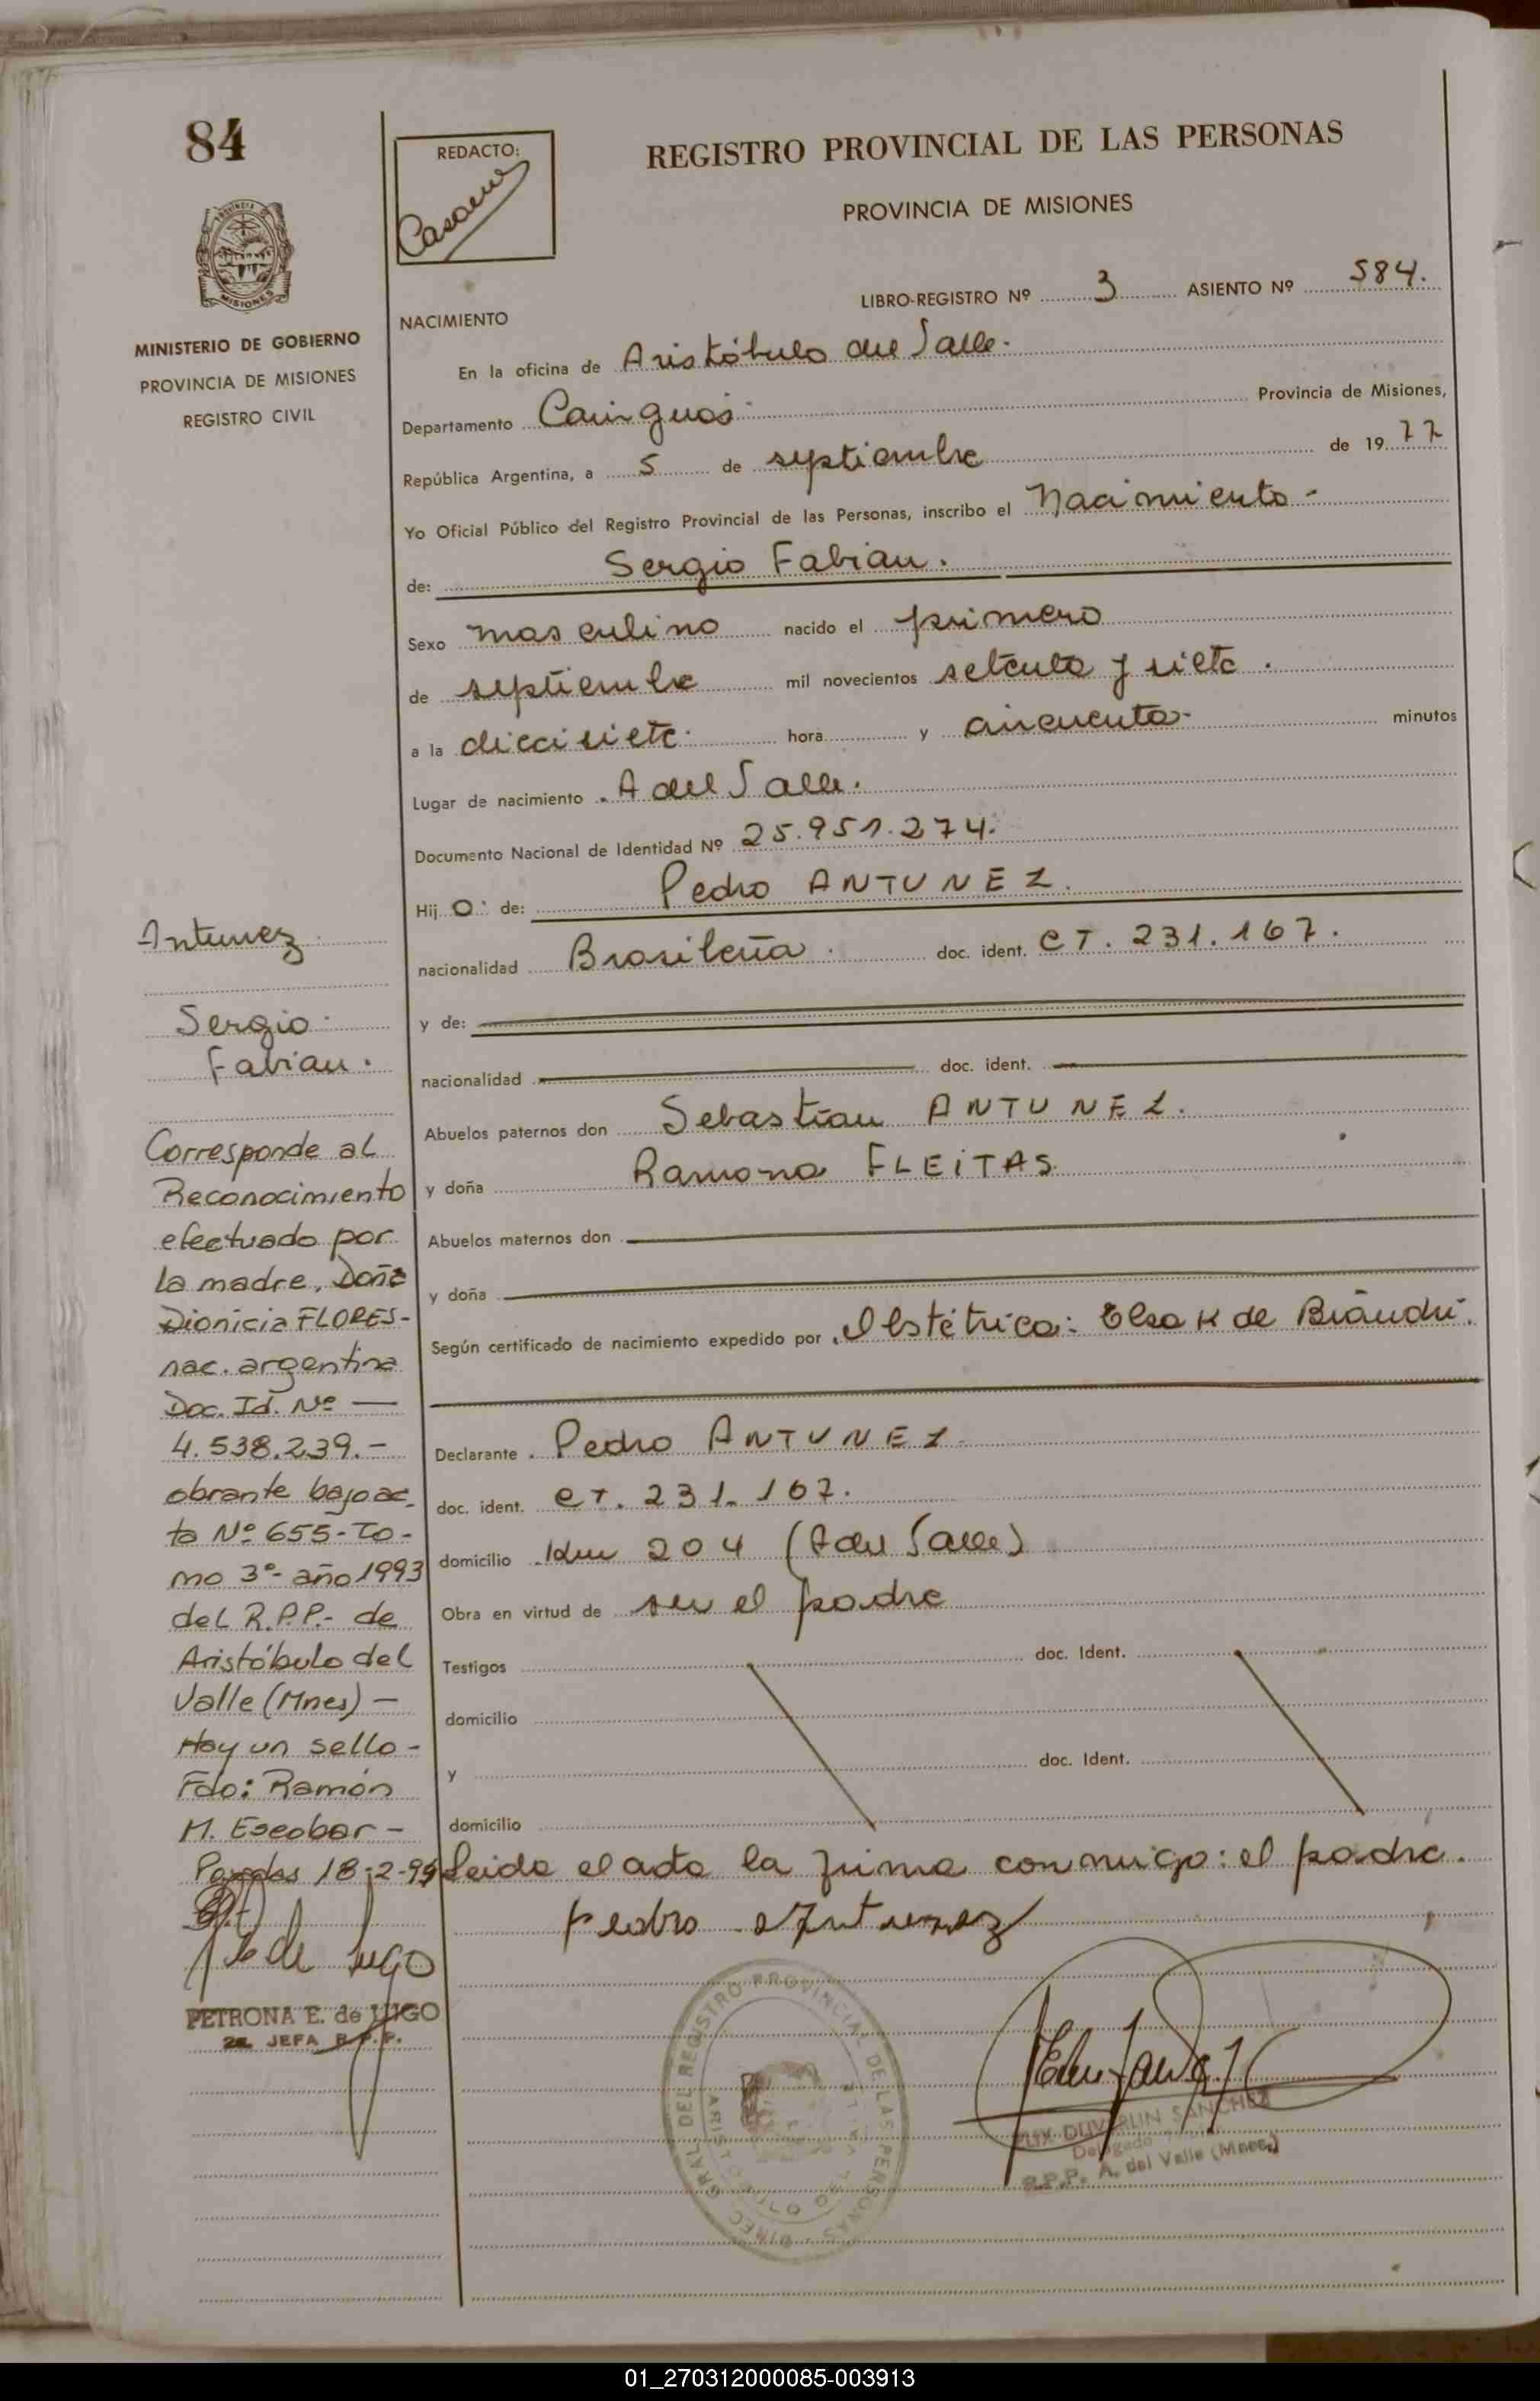 84
MINISTERIO DE GOBIERNO
PROVINCIA DE MISIONES
REGISTRO CIVIL
REDACTO:
REGISTRO PROVINCIAL DE LAS PERSONAS
PROVINCIA DE MISIONES
LIBRO-REGISTRO Nº 3 ASIENTO Nº 584.
NACIMIENTO
En la oficina de Aristóbulo del Valle.
Departamento Cainguás Provincia de Misiones,
República Argentina, a 5 de septiembre de 19 77
Yo Oficial Público del Registro Provincial de las Personas, inscribo el Nacimiento-
de: Sergio Fabian.
Sexo masculino nacido el primero
de septiembre mil novecientos setenta y siete.
a la diecisiete hora y cincuenta- minutos
Lugar de nacimiento A del Valle.
Documento Nacional de Identidad Nº 25.951.274.
Hij o de: Pedro ANTUNEZ.
nacionalidad Brasileña. doc. ident. CT. 231.167.
y de:
nacionalidad doc. ident.
Abuelos paternos don Sebastían ANTUNEZ.
y doña Ramona FLEiTAS
Abuelos maternos don
y doña
Según certificado de nacimiento expedido por Obstétrica: Elsa K de
Declarante Pedro ANTUNEZ
doc. ident. CT. 231.167.
domicilio Km 204 (A del Valle)
Obra en virtud de ser el padre
Testigos doc. Ident.
domicilio
y doc. Ident.
domicilio
Leida el acta la firma conmigo: el padre.
Pedro Antunez
Antunez
Sergio
Fabian.
Corresponde al
Reconocimiento
efectuado por
la madre, Doña
Dionicia FLORES-
nac. argentina
Doc. Id. Nº —
4.538.239.-
obrante bajo ac_
ta Nº 655- To-
mo 3º- año 1993
del R.P.P.- de
Aristóbulo del
Valle (Mnes) —
Hay un sello -
Fdo: Ramón
M. Escobar -
Posadas 18-2-94
de Lugo
PETRONA E. de LUGO
2a. JEFA R.P.P.
DIREC. GRAL. DEL REGISTRO PROVINCIAL DE LAS PERSONAS
ARISTOBULO DEL VALLE
SANCHEZ
Delegado
R.P.P. A. del Valle (Mnes.)
01_270312000085-003913